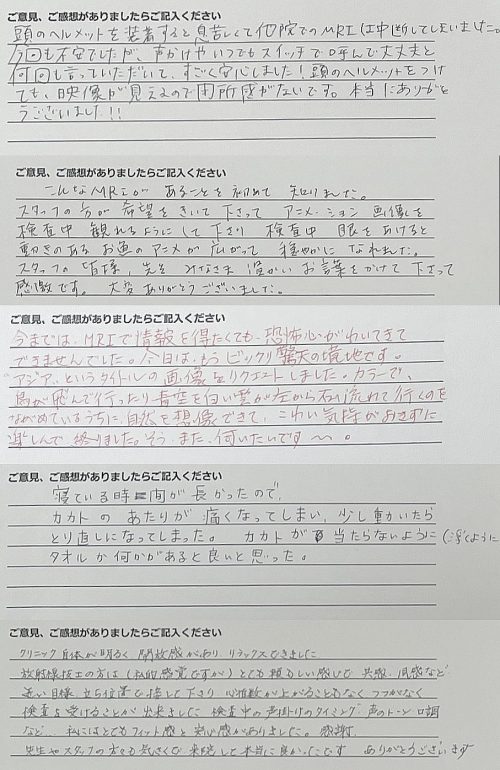 ご意見、ご感想がありましたらご記入ください
頭のヘルメットを装着すると息苦しくて他院でのMRIは中断してしまいました。
今回も不安でしたが、声かけやいつでもスイッチで呼んで大丈夫と
何回も言っていただいて、すごく安心しました！頭のヘルメットをつけ
ても、映像が見えるので閉所感がないです。本当にありがと
うございました！！
ご意見、ご感想がありましたらご記入ください
こんなMRIが あることを初めて 知りました。
スタッフの方が 希望をきいて下さって アニメーション画像を
検査中 観れるようにして下さり 検査中 眼をあけると
動きのある お魚のアニメが 広がって 穏やかに なれました。
スタッフの 皆様、先生 みなさま 温かい お言葉をかけて下さって
感激です。 大変ありがとうございました。
ご意見、ご感想がありましたらご記入ください
今までは、MRIで情報を得たくても、恐怖心がわいてきて
できませんでした。今日は、もうビックリ驚天の境地です。
"アジア"というタイトルの画像をリクエストしました。カラーで、
鳥が飛んで行ったり、青空を白い雲が左から右へ流れて行くのを
ながめているうちに、自然を想像できて、こわい気持がおきずに
楽しんで 終りました。そう、また、伺いたいです〜。
ご意見、ご感想がありましたらご記入ください
寝ている時間が長かったので、
カカトの あたりが 痛くなってしまい、少し動いたら
とり直しになってしまった。 カカトが 当たらないように(浮くように
タオルか何かがあると良いと思った。
ご意見、ご感想がありましたらご記入ください
クリニック自体が明るく 開放感があり、リラックスできました
放射線技士の方は(私的感覚ですが)とても頼もしい感じで 共感、同感など
近い目線、立ち位置で接して下さり 心拍数が上がることもなく つつがなく
検査を受けることが出来ました 検査中の声掛けのタイミング、声のトーン口調
など、 私にはとてもフィット感と安心感がありました。 感謝
先生やスタッフの方々も気さくで 来院して本当に良かったです ありがとうございます